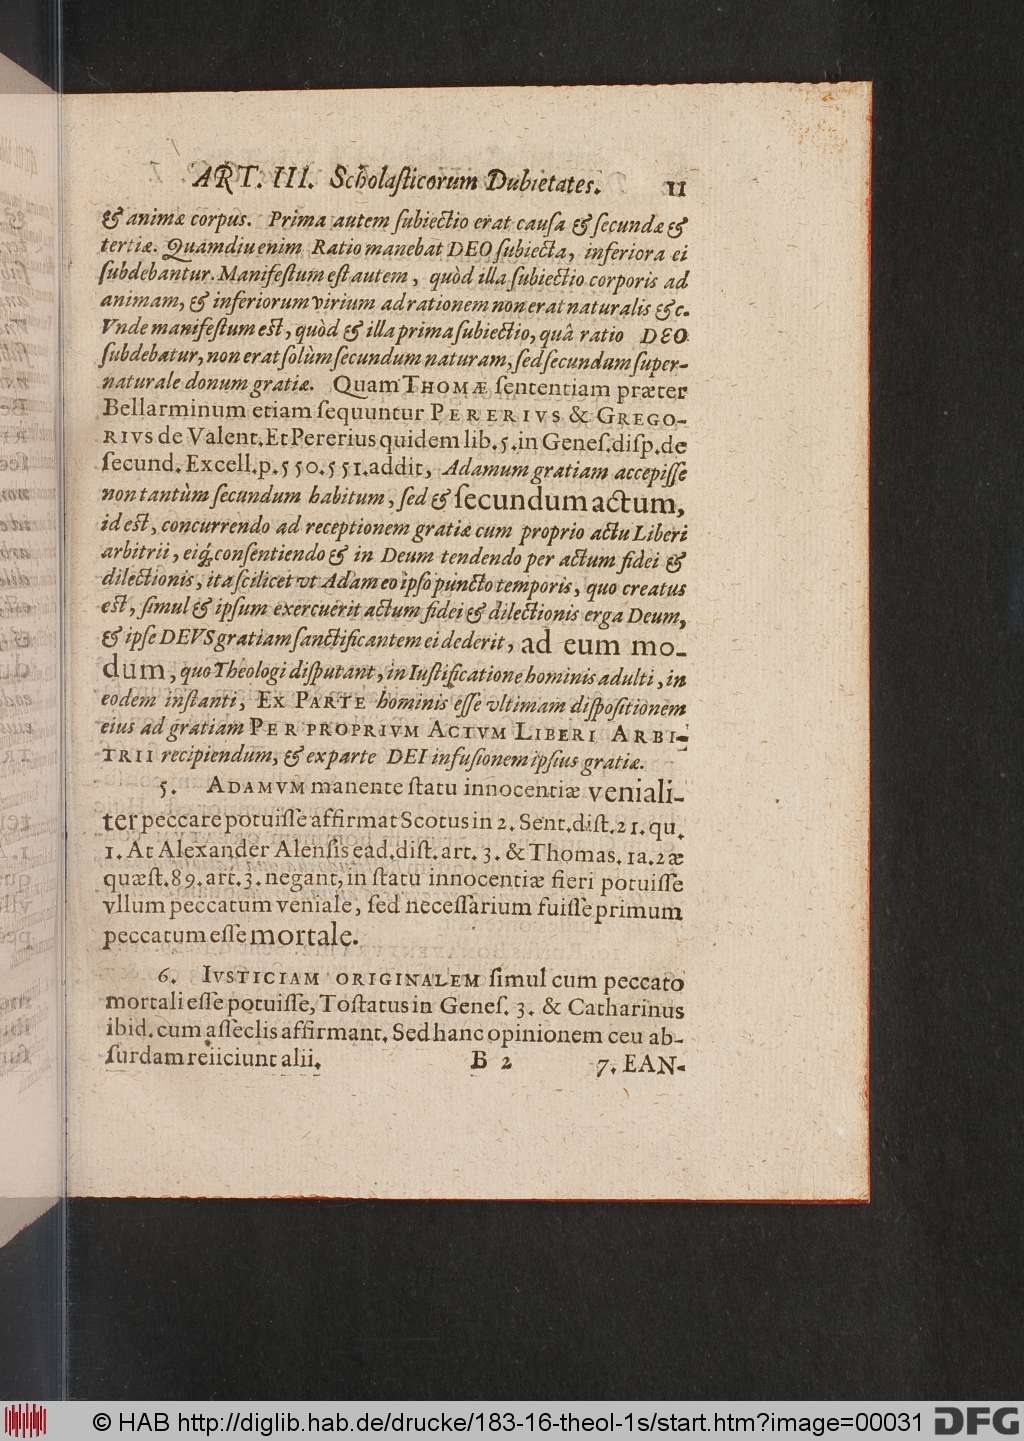 ART. III. Scholaſticorum Dubietates. 11
& animæ corpus. Prima autem ſubiectio erat cauſa & ſecundæ &
tertiæ. Quamdiu enim Ratio manebat DEO ſubiecta, inferiora ei
ſubdebantur. Manifeſtum eſt autem, quòd illa ſubiectio corporis ad
animam, & inferiorum virium ad rationem non erat naturalis &c.
Vnde manifeſtum eſt, quòd & illa prima ſubiectio, quâ ratio DEO
ſubdebatur, non erat ſolùm ſecundum naturam, ſed ſecundum ſuper-
naturale donum gratiæ. Quam THOMÆ ſententiam præter
Bellarminum etiam ſequuntur PERERIVS & GREGO-
RIVS de Valent. Et Pererius quidem lib. 5. in Geneſ. diſp. de
ſecund. Excell. p. 550. 551. addit, Adamum gratiam accepiſſe
non tantùm ſecundum habitum, ſed & ſecundum actum,
id eſt, concurrendo ad receptionem gratiæ cum proprio actu Liberi
arbitrii, eiq́; conſentiendo & in Deum tendendo per actum fidei &
dilectionis, ita ſcilicet vt Adam eo ipſo puncto temporis, quo creatus
eſt, ſimul & ipſum exercuerit actum fidei & dilectionis erga Deum,
& ipſe DEVS gratiam ſanctificantem ei dederit, ad eum mo-
dum, quo Theologi diſputant, in Iuſtificatione hominis adulti, in
eodem inſtanti, EX PARTE hominis eſſe vltimam diſpoſitionem
eius ad gratiam PER PROPRIVM ACTVM LIBERI ARBI-
TRII recipiendum, & ex parte DEI infuſionem ipſius gratiæ.
5. ADAMVM manente ſtatu innocentiæ veniali-
ter peccare potuiſſe affirmat Scotus in 2. Sent. diſt. 21. qu.
1. At Alexander Alenſis ead. diſt. art. 3. & Thomas. 1a. 2æ
quæſt. 89. art. 3. negant, in ſtatu innocentiæ fieri potuiſſe
vllum peccatum veniale, ſed neceſſarium fuiſſe primum
peccatum eſſe mortale.
6. IVSTICIAM ORIGINALEM ſimul cum peccato
mortali eſſe potuiſſe, Toſtatus in Geneſ. 3. & Catharinus
ibid. cum aſſeclis affirmant. Sed hanc opinionem ceu ab-
ſurdam reiiciunt alii. B 2 7. EAN-
© HAB http://diglib.hab.de/drucke/183-16-theol-1s/start.htm?image=00031 DFG